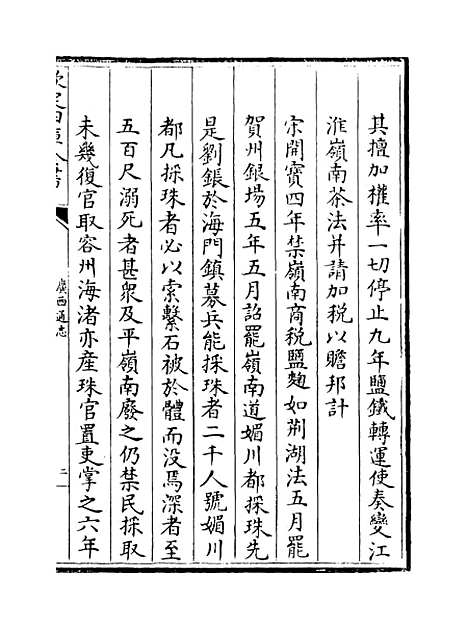 其擅加榷率一切停止九年鹽鐵轉運使奏變江
淮嶺南茶法并請加税以贍邦計
宋開寶四年禁嶺南商税鹽麴如荆湖法五月罷
賀州銀場五年五月詔罷嶺南道媚川都採珠先
是劉鋹於海門鎮募兵能採珠者二千人號媚川
都凡採珠者必以索繫石被於體而没焉深者至
五百尺溺死者甚衆及平嶺南廢之仍禁民採取
未幾復官取容州海渚亦産珠官置吏掌之六年
欽定四庫全書
廣西通志
二